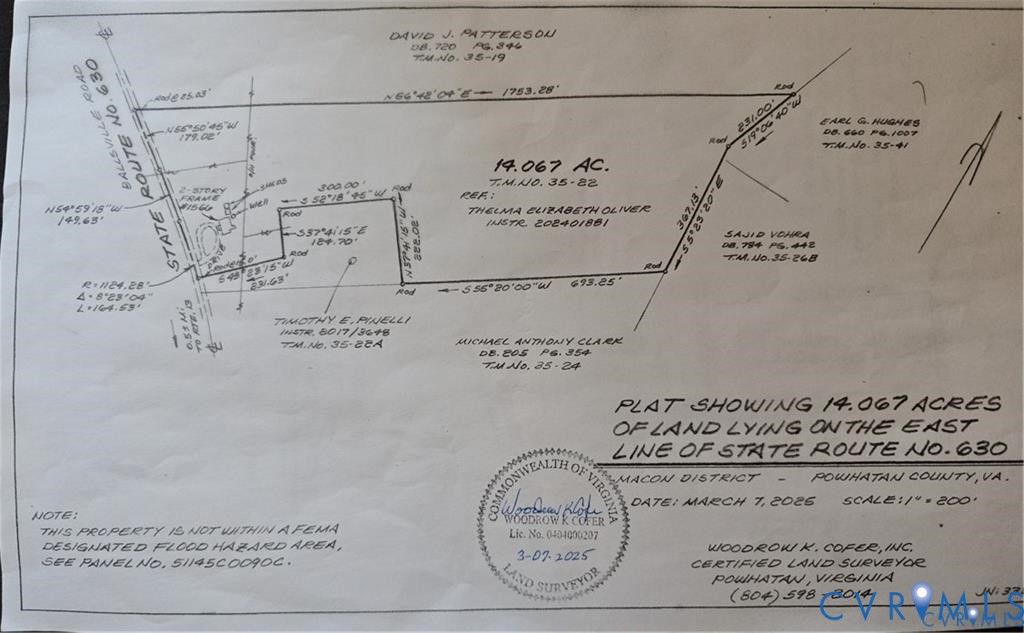 DAVID J. PATTERSON
DB. 720 PG. 346
T.M. NO. 35-19
BALLSVILLE ROAD
STATE ROUTE NO. 630
Rod @ 25.03'
N 56°42'04" E 1753.28'
Rod
231.00'
S 19°06'40" W
Rod
EARL G. HUGHES
DB. 660 PG. 1007
T.M. NO. 35-41
N 55°50'45" W
179.02'
N 54°59'18" W
149.63'
2-STORY
FRAME
#1566
SHEDS
WELL
300.00'
S 52°18'45" W
Rod
Rod
S 37°41'15" E
124.70'
Rod
N 37°41'15" W
222.02'
14.067 AC.
T.M. NO. 35-22
REF.:
THELMA ELIZABETH OLIVER
INSTR. 202401881
367.13'
S 5°23'20" E
SAJID VOHRA
DB. 784 PG. 442
T.M. NO. 35-26B
R = 1124.28'
Δ = 8°23'04"
L = 164.53'
S 45°23'15" W
231.63'
Rod
S 55°20'00" W 693.25'
Rod
0.53 MI.
TO RTE. 13
TIMOTHY E. PINELLI
INSTR. 2017/3648
T.M. NO. 35-22A
MICHAEL ANTHONY CLARK
DB. 205 PG. 354
T.M. NO. 35-24
PLAT SHOWING 14.067 ACRES
OF LAND LYING ON THE EAST
LINE OF STATE ROUTE NO. 630
MACON DISTRICT - POWHATAN COUNTY, VA.
DATE: MARCH 7, 2025 SCALE: 1" = 200'
COMMONWEALTH OF VIRGINIA
Woodrow K. Cofer
WOODROW K COFER
Lic. No. 0404000207
3-07-2025
LAND SURVEYOR
NOTE:
THIS PROPERTY IS NOT WITHIN A FEMA
DESIGNATED FLOOD HAZARD AREA,
SEE PANEL NO. 51145C0090C.
WOODROW K. COFER, INC.
CERTIFIED LAND SURVEYOR
POWHATAN, VIRGINIA
(804) 598-3014
CVRMLS
CVRMLS